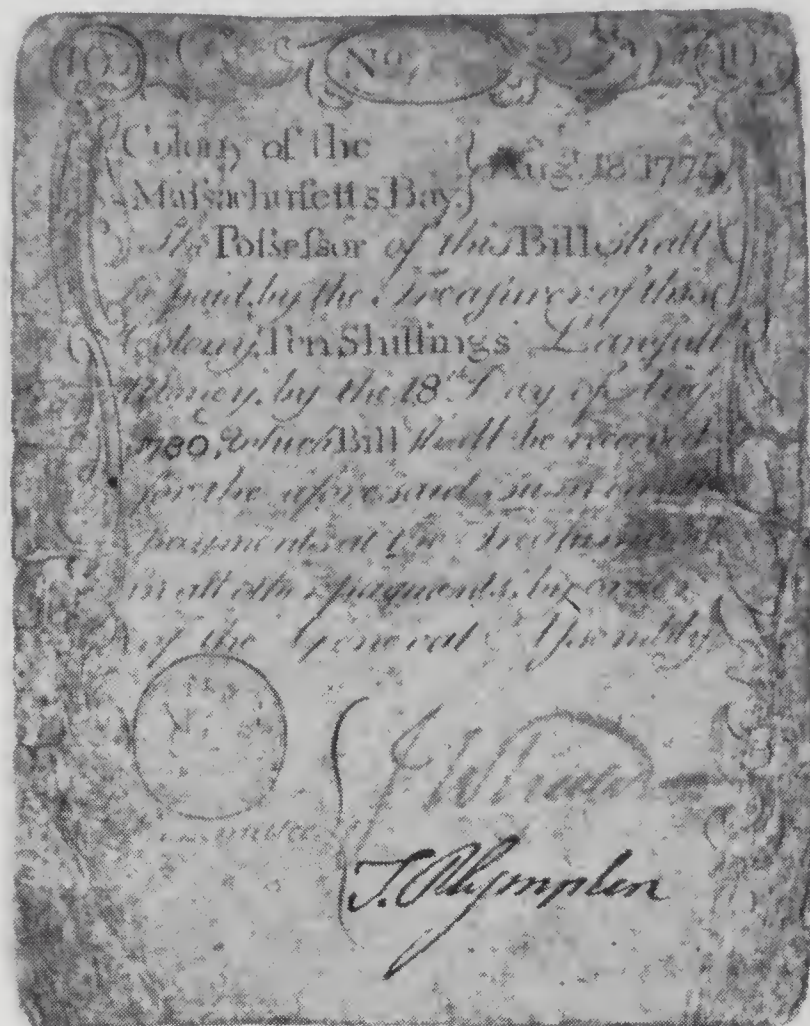 10 No 10
Colony of the
Massachusetts Bay. } Augt. 18. 1775
The Possessor of this Bill shall
be paid, by the Treasurer of this
Colony, Ten Shillings Lawfull
Money, by the 18th Day of Aug
1780, which Bill shall be received
for the aforesaid sum in all
payments at the Treasury &
in all other payments, by order
of the General Assembly
Committee
J Wheeler
J. Plympton